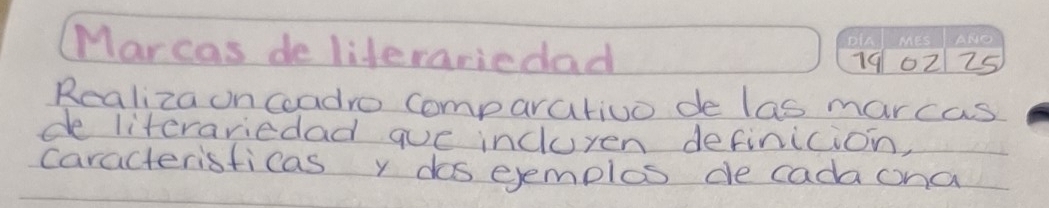 Marcas de literariedad
DÍA MES AÑO
19 02 25
Realiza un cuadro comparativo de las marcas
de literariedad que incluyen definición,
caracteristicas y dos ejemplos de cada una